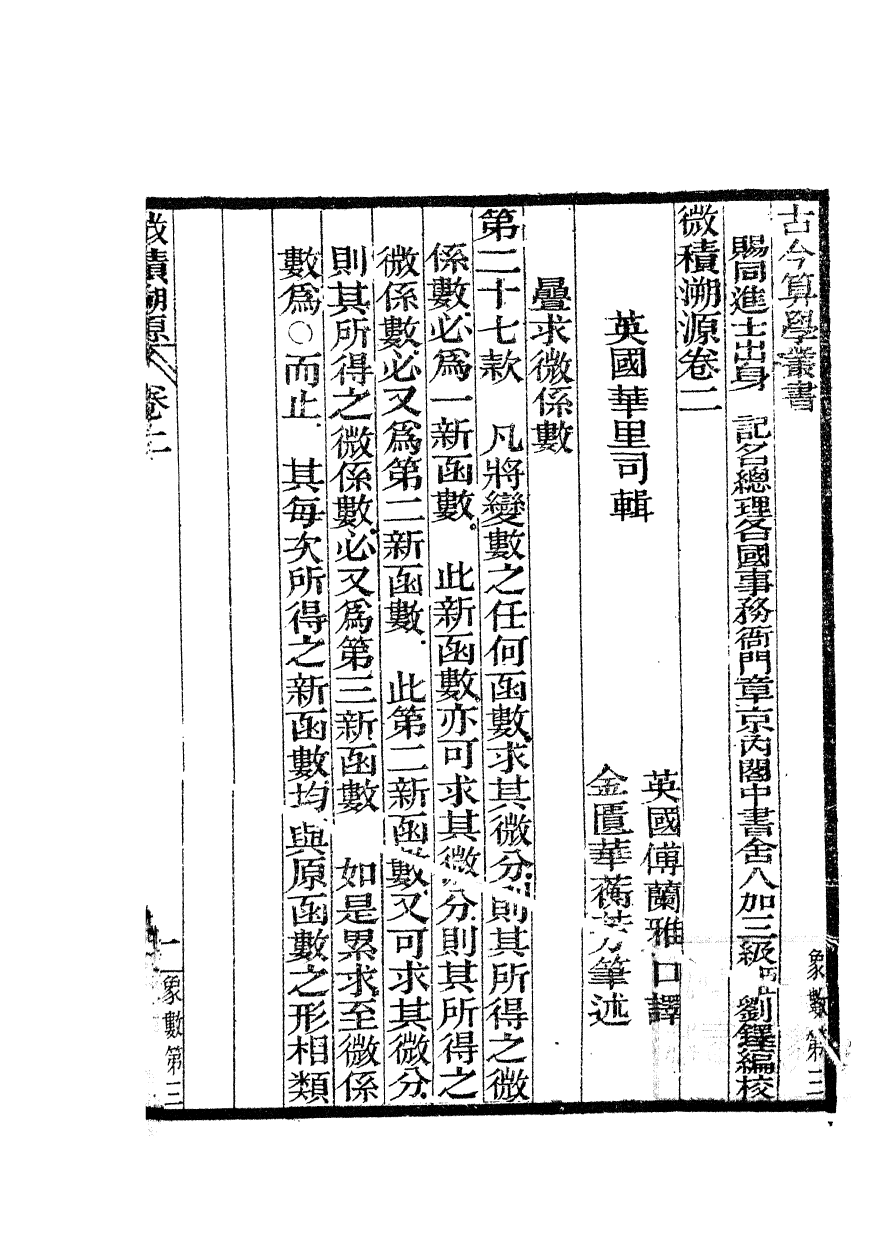 古今算學叢書
象數第三
賜同進士出身 記名總理各國事務衙門章京內閣中書舍人加三級 劉鐸編校
微積溯源卷二
英國傅蘭雅口譯
英國華里司輯
金匱華蘅芳筆述
疊求微係數
第二十七款 凡將變數之任何函數求其微分則其所得之微
係數必爲一新函數。 此新函數亦可求其微分則其所得之
微係數必又爲第二新函數. 此第二新函數又可求其微分.
則其所得之微係數必又爲第三新函數 如是累求至微係
數爲〇而止. 其每次所得之新函數均與原函數之形相類
微積溯原 卷二
一
象數第三